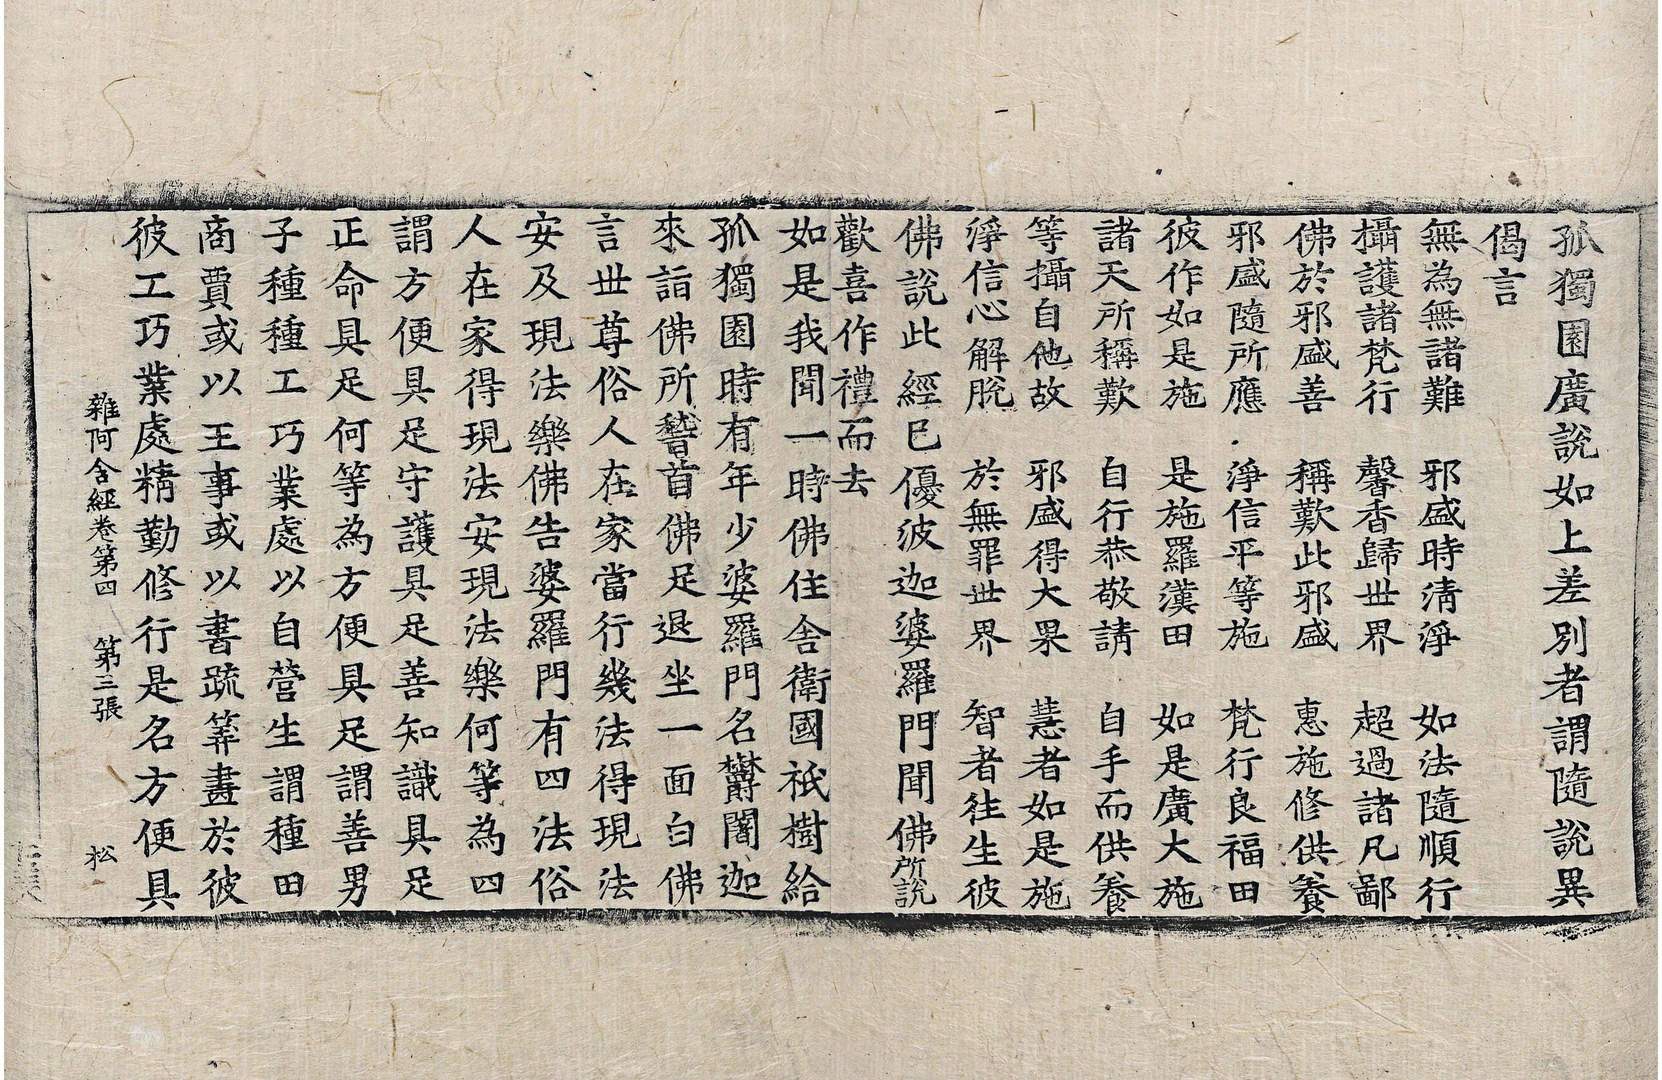 孤獨園廣說如上差別者謂隨說異
偈言
無為無諸難　邪盛時清淨　如法隨順行
攝護諸梵行　馨香歸世界　超過諸凡鄙
佛於邪盛善　稱歎此邪盛　惠施修供養
邪盛隨所應　淨信平等施　梵行良福田
彼作如是施　是施羅漢田　如是廣大施
諸天所稱歎　自行恭敬請　自手而供養
等攝自他故　邪盛得大果　慧者如是施
淨信心解脫　於無罪世界　智者往生彼
佛說此經已優波迦婆羅門聞佛所說
歡喜作禮而去
如是我聞一時佛住舍衛國祇樹給
孤獨園時有年少婆羅門名欝闍迦
來詣佛所稽首佛足退坐一面白佛
言世尊俗人在家當行幾法得現法
安及現法樂佛告婆羅門有四法俗
人在家得現法安現法樂何等為四
謂方便具足守護具足善知識具足
正命具足何等為方便具足謂善男
子種種工巧業處以自營生謂種田
商賈或以王事或以書疏筭畫於彼
彼工巧業處精勤修行是名方便具
雜阿含經卷第四　第三張　松